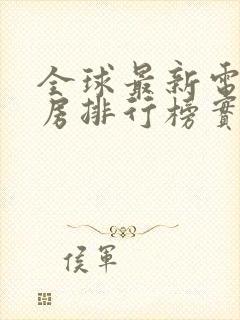 全球最新電
房排行榜實
侯軍